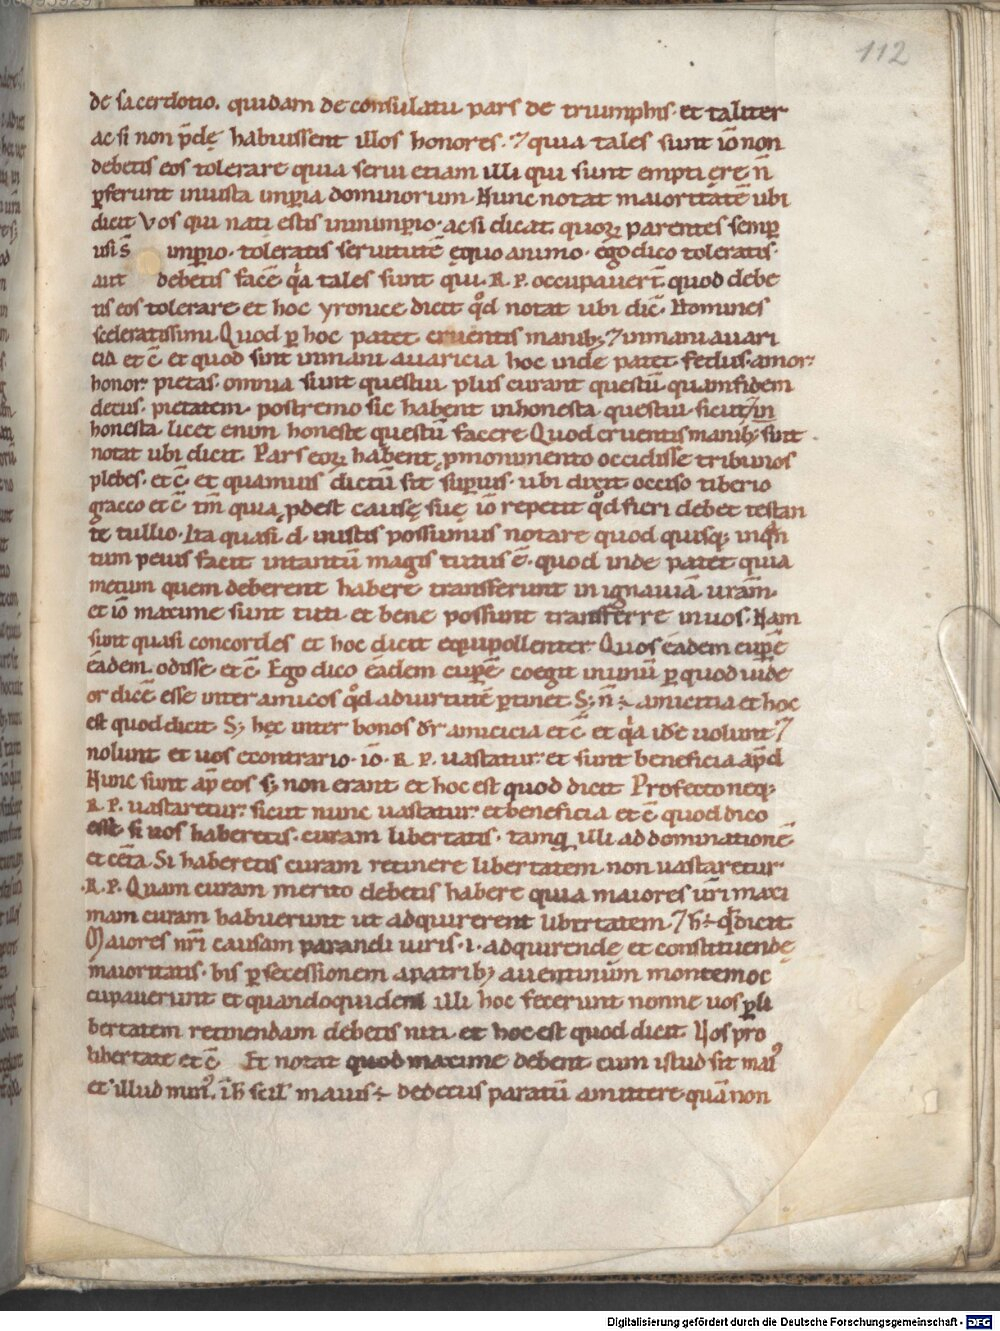 112
de sacerdotio. quidam de consulatu pars de triumphis. et taliter
ac si non p̄dę habuissent illos honores. ⁊ quia tales sunt iō non
debetis eos tolerare quia serui etiam illi qui sunt empti ere n̄
ꝑferunt iniusta imꝑia dominorum. Nunc notat maioritatē ubi
dicit Vos qui nati estis in imꝑio. ac si dicat quoꝝ parentes semꝑ
usi s̄ imꝑio. toleratis seruitutē equo animo. ego dico toleratis.
aut debetis facē q̓a tales sunt qui. R. P. occupauerт̄ quod debe
tis eos tolerare et hoc yronice dicit q̊d notat ubi dic̄ Homines
sceleratissimi. Quod ꝑ hoc patet cruentis manibꝫ ⁊ inmani auari
cia et c̄ et quod sint inmani auaricia hoc inde patet fedus. amor.
honor. pietas. omnia sunt questui plus curant questū quam fidem
decus. pietatem. postremo sic habent inhonesta questui sicut in
honesta. licet enim honeste questū facere Quod cruentis manibꝫ sint
notat ubi dicit Pars eoꝝ habent ꝓ monimento occidisse tribunos
plebes. et c̄ et quamuis dictū sit suꝑius. ubi dixit occiso tiberio
gracco et c̄ tm̄ quia ꝓdest causę suę iō repetit q̊d fieri debet testan
te tullio. Ita quasi .d. iniustis possumus notare quod quisqꝫ inq̄n
tum peius facit intantū magis tutus ē. quod inde patet quia
metum quem deberent habere transferunt in ignauiā. uram̄
et iō maxime sunt tuti et bene possunt transferre in uos. Nam
sunt quasi concordes et hoc dicit equipollenter Quos eadem cupē
eadem odisse et c̄ Ego dico eadem cupē coegit in unū ꝑ quod uide
or dicē esse inter amicos q̊d ad uirtutē ꝑtinet Sꝫ n̄ ÷ amicitia et hoc
est quod dicit Sꝫ hęc inter bonos dr̄ amicicia et c̄ et q̓a idē uolunt ⁊
nolunt et uos econtrario. iō. R. P. uastatur. et sunt beneficia ap̄d
Nunc sunt ap̄ eos sꝫ non erant et hoc est quod dicit Profecto neqꝫ
R. P. uastaretur. sicut nunc uastatur. et beneficia et c̄ quod dico
esse si uos haberetis. curam libertatis. tamq illi ad dominationē
et cet̄a. Si haberetis curam retinere libertatem. non uastaretur.
.R. P. Quam curam merito debetis habere quia maiores uri maxi
mam curam habuerunt ut adquirerent libertatem. ⁊ h̄ ÷ q̊d dicit
Maiores nr̄i causam parandi iuris .i. adquirendę et constituendę
maioritatis. bis ꝑ secessionem apatribꝫ auentinum montem oc
cupauerunt et quandoquidem illi hoc fecerunt nonne uos ꝑ li
bertatem retinendam debetis niti. et hoc est quod dicit Vos pro
libertate et c̄ Et notat quod maxime debent cum istud sit mai᷒
et illud min᷒. ih̄ scil᷒ maius ÷ dedecus paratū amittere. quā non
Digitalisierung gefördert durch die Deutsche Forschungsgemeinschaft - DFG